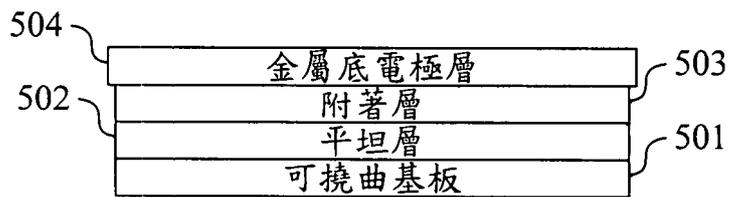 504
金屬底電極層
503
附著層
502
平坦層
501
可撓曲基板